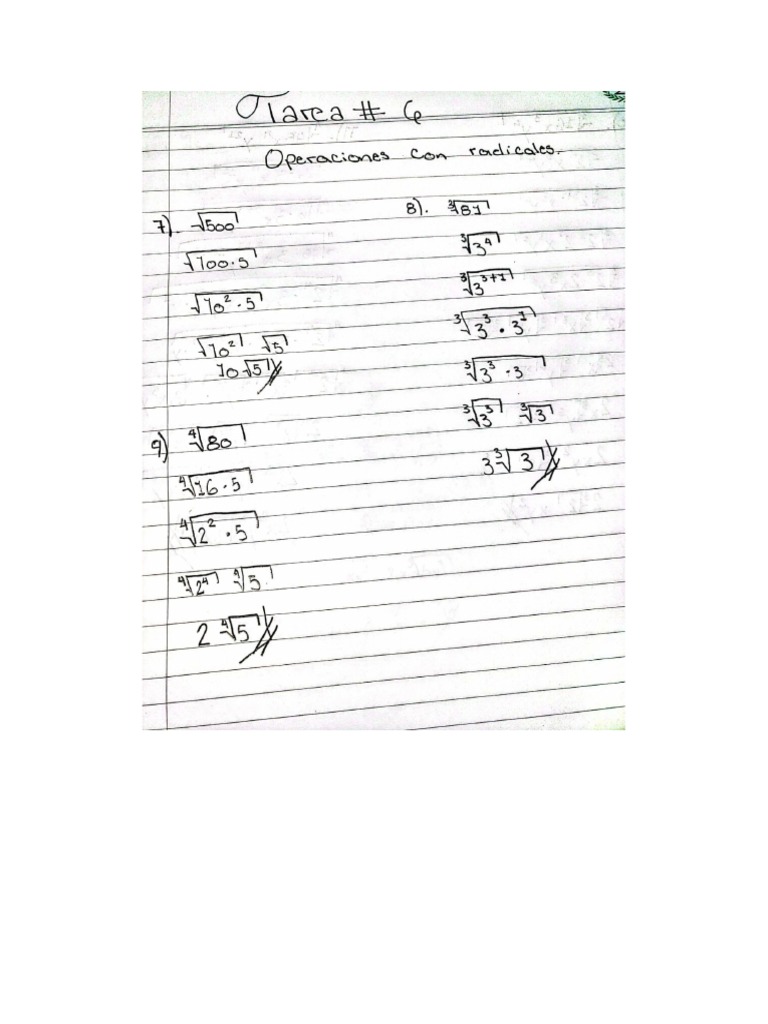 Tarea # 6
Operaciones con radicales.
7). √500
√100·5
√10²·5
√10² √5
10√5
8). ³√81
³√3⁴
³√3³⁺¹
³√3³·3¹
³√3³·3
³√3³ ³√3
3³√3
9) ⁴√80
⁴√16·5
⁴√2²·5
⁴√2⁴ ⁴√5
2 ⁴√5